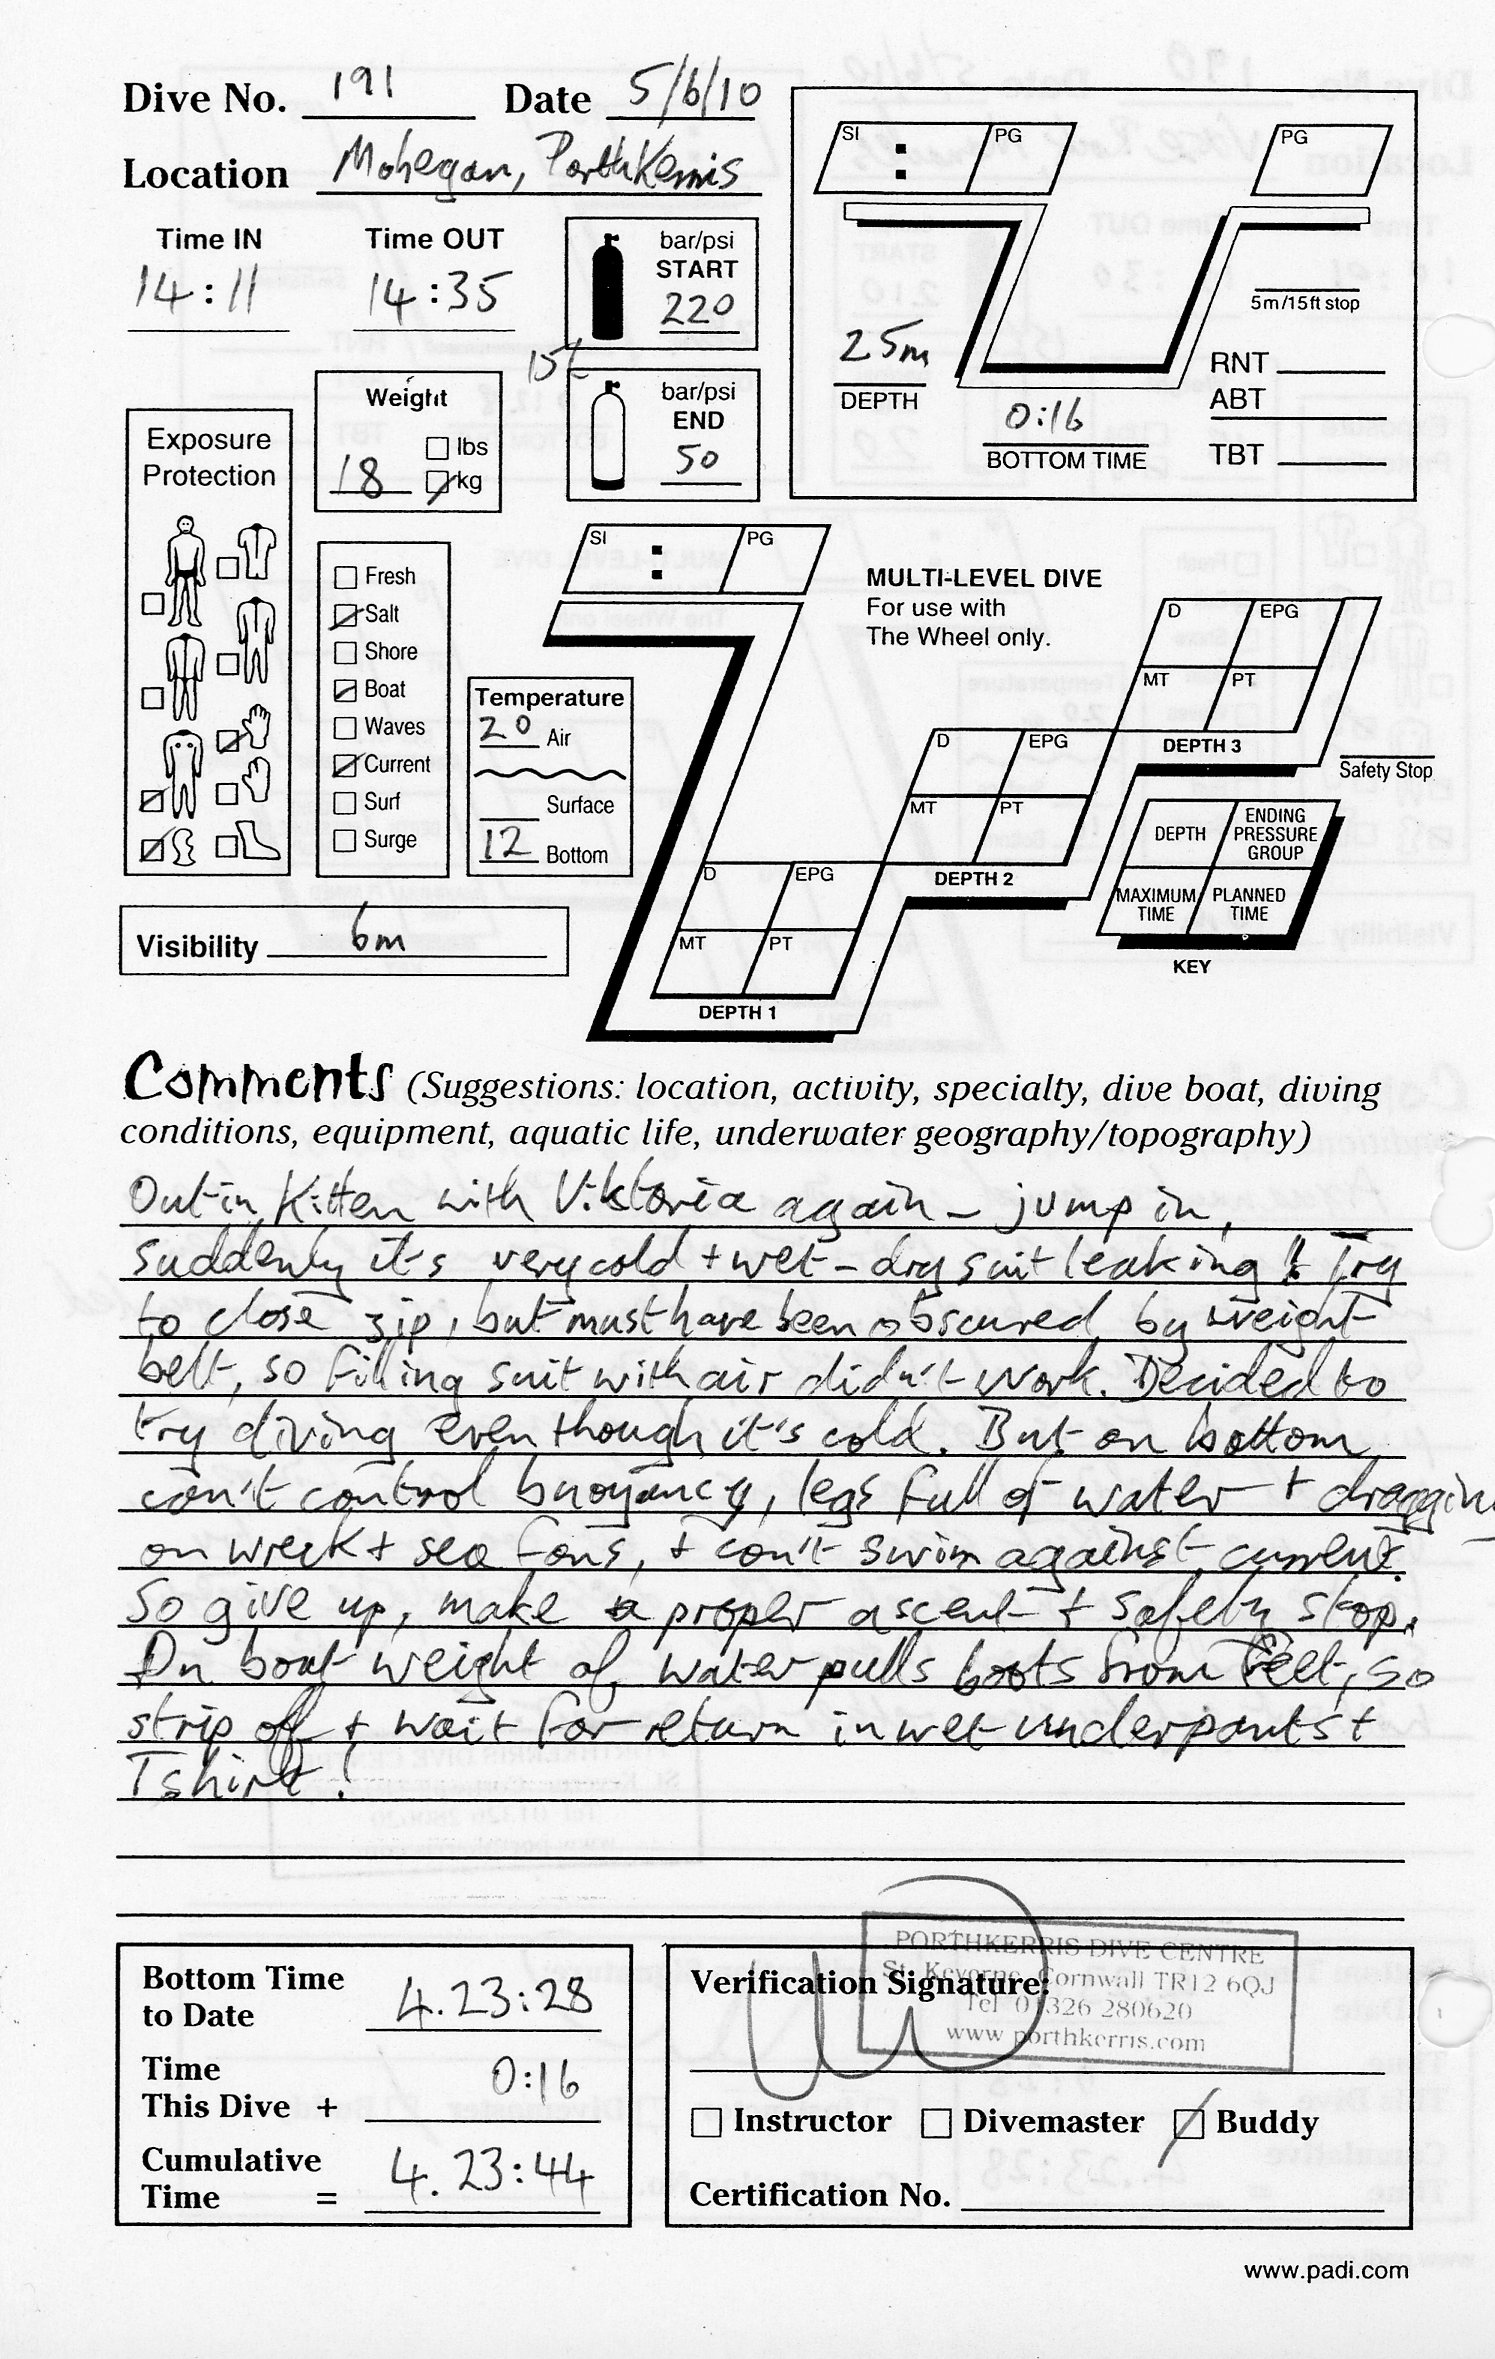 Dive No. 191 Date 5/6/10
Location Mohegan, PorthKerris
Time IN Time OUT
14:11 14:35
bar/psi
START
220
15L
bar/psi
END
50
Weight
lbs
18 kg
SI : PG PG
5m/15ft stop
25m
DEPTH
0:16
BOTTOM TIME
RNT
ABT
TBT
Exposure
Protection
Fresh
Salt
Shore
Boat
Waves
Current
Surf
Surge
Temperature
20 Air
Surface
12 Bottom
Visibility 6m
SI : PG
MULTI-LEVEL DIVE
For use with
The Wheel only.
D EPG
MT PT
DEPTH 3
Safety Stop
D EPG
MT PT
DEPTH 2
D EPG
MT PT
DEPTH 1
DEPTH ENDING PRESSURE GROUP
MAXIMUM TIME PLANNED TIME
KEY
Comments (Suggestions: location, activity, specialty, dive boat, diving
conditions, equipment, aquatic life, underwater geography/topography)
Out in Kitten with Viktoria again - jump in,
suddenly it's very cold + wet - dry suit leaking! Try
to close zip, but must have been obscured by weight
belt, so filling suit with air didn't work. Decided to
try diving even though it's cold. But on bottom
can't control buoyancy, legs full of water + dragging
on wreck + sea fans, + can't swim against current.
So give up, make a proper ascent + safety stop.
On boat weight of water pulls boots from feet, so
strip off + wait for return in wet underpants +
Tshirt!
Bottom Time
to Date 4.23:28
Time
This Dive + 0:16
Cumulative
Time = 4.23:44
PORTHKERRIS DIVE CENTRE
St. Keverne, Cornwall TR12 6QJ
Tel 01326 280620
www.porthkerris.com
Verification Signature:
Instructor Divemaster Buddy
Certification No.
www.padi.com